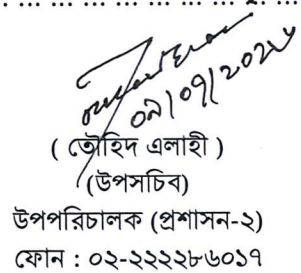 ( তৌহিদ এলাহী )
(উপসচিব)
উপপরিচালক (প্রশাসন-২)
ফোন : ০২-২২২২৮৬০১৭